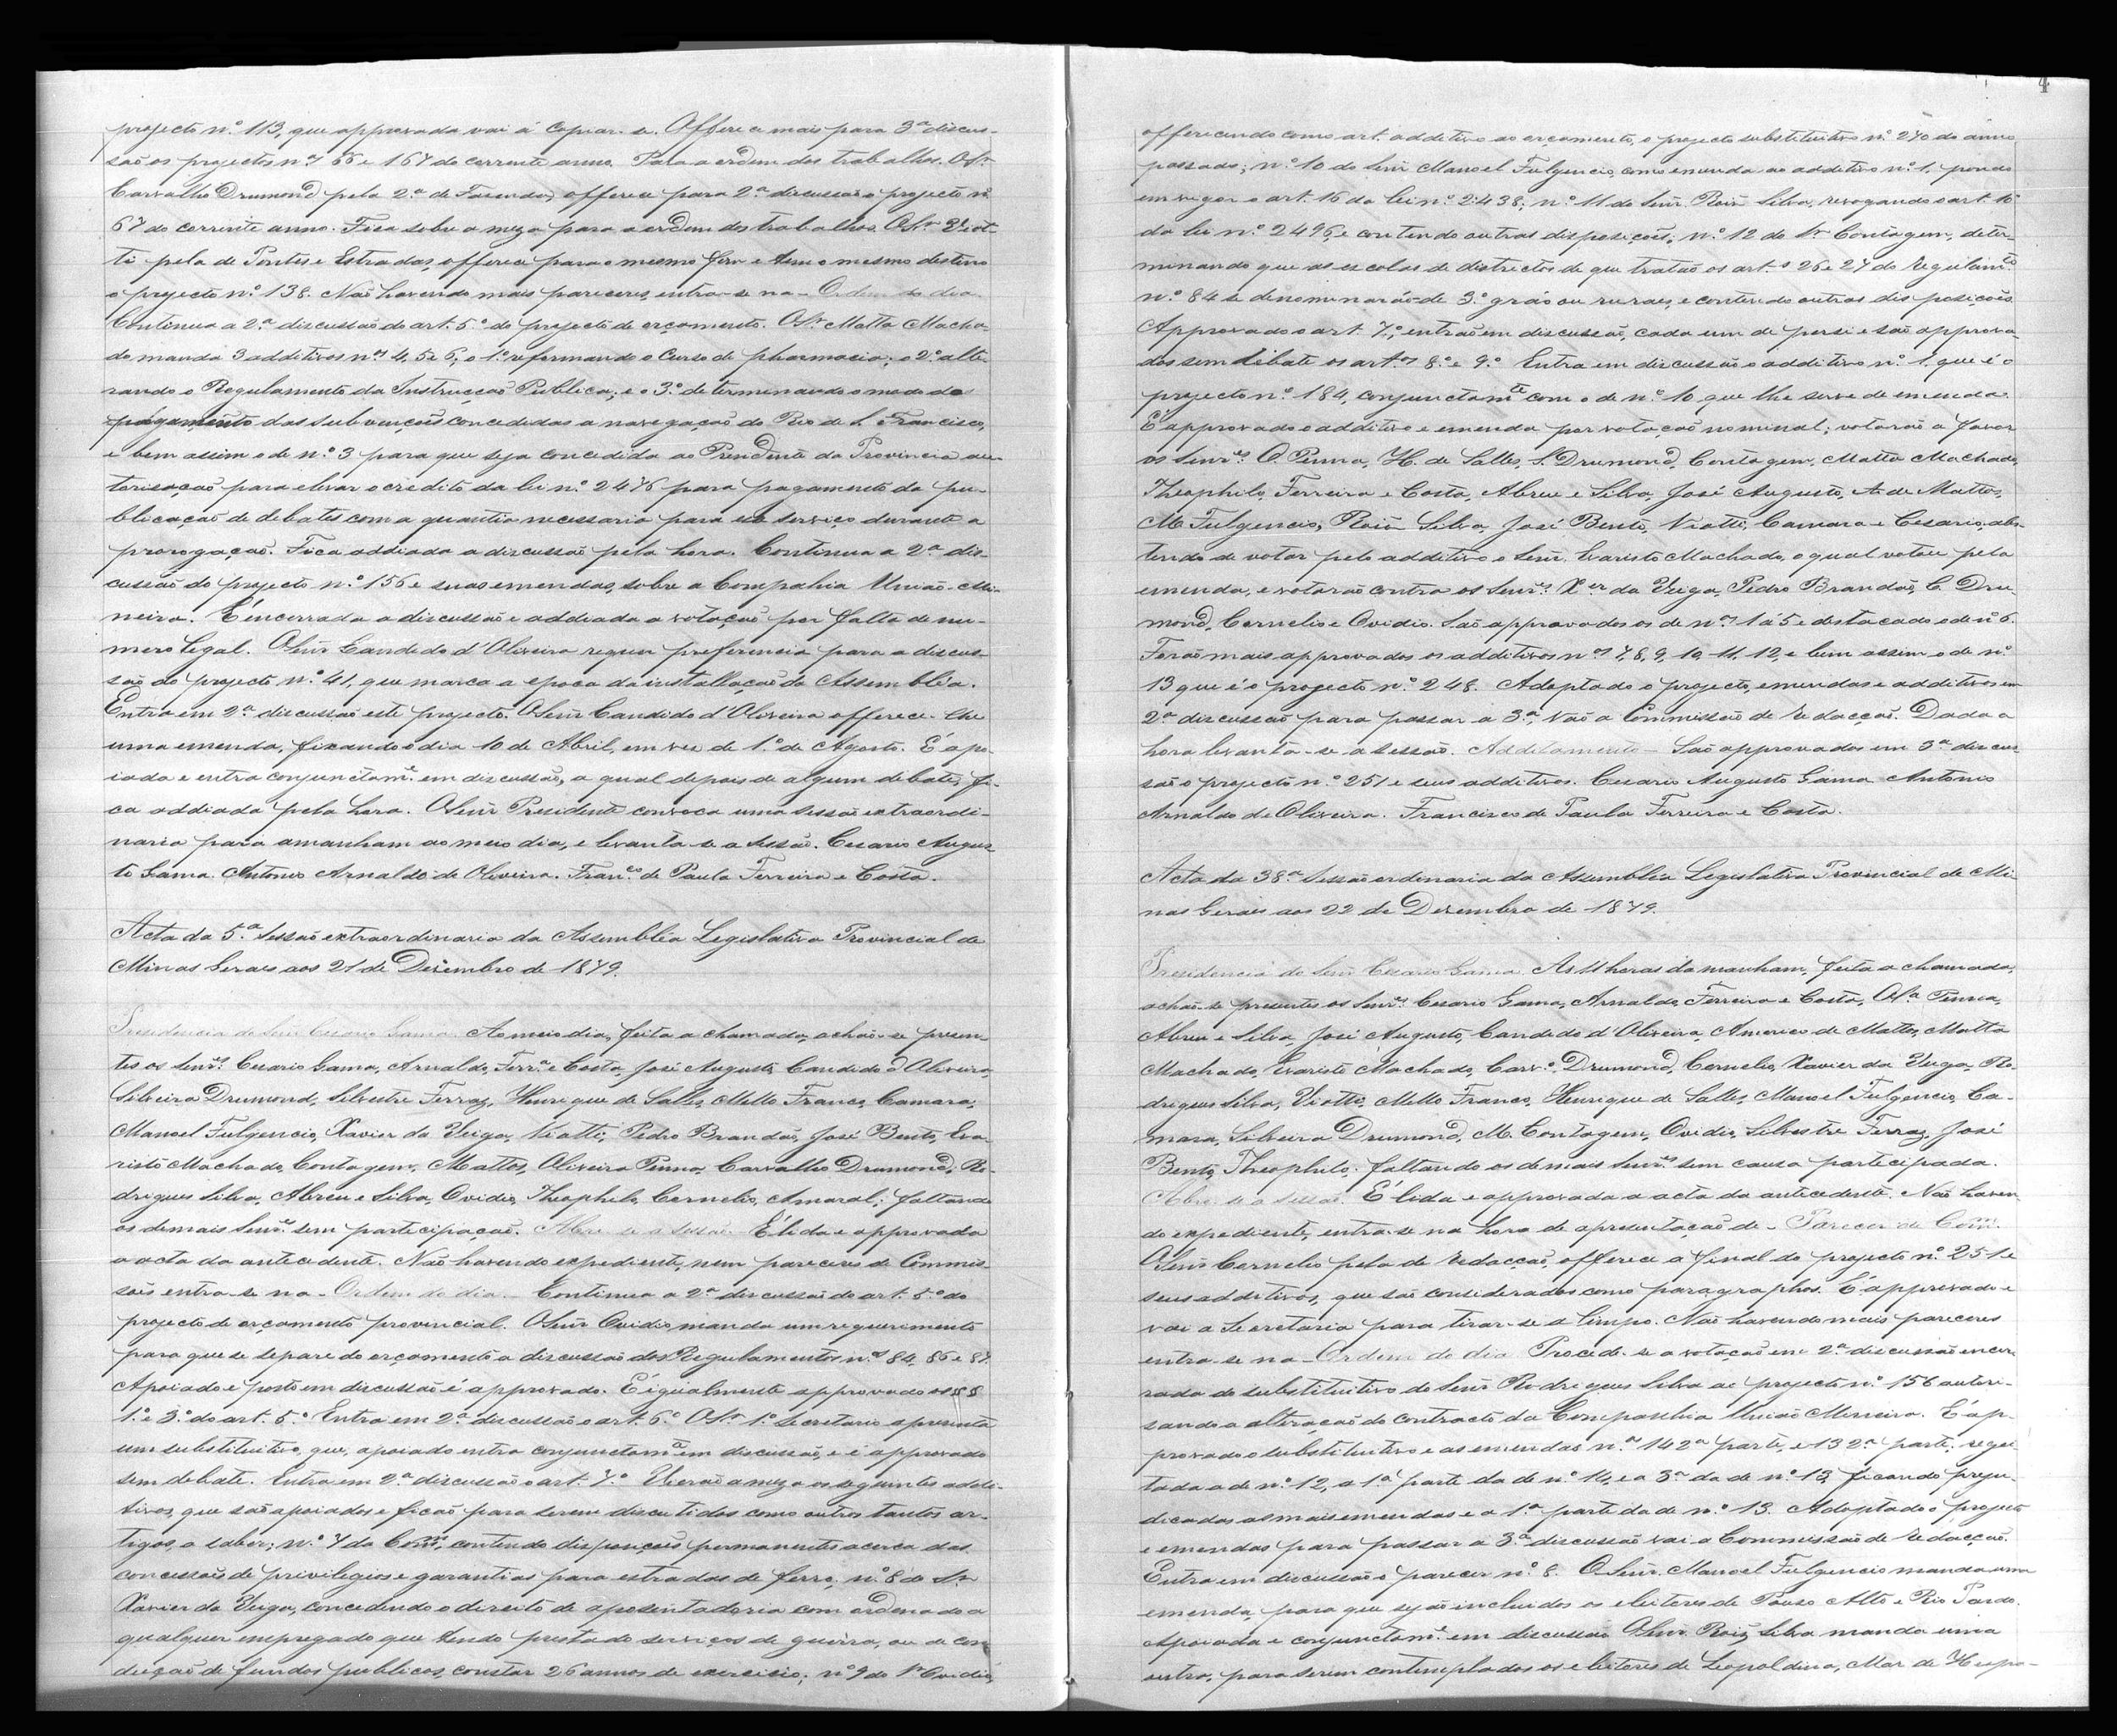 projecto n.º 113, que approvada vai á copiar-se. Offerece mais para 3ª discus-
são os projectos nos 66 e 167 do corrente anno. Para a ordem dos trabalhos. O Sr.
Carvalho Drumond pela 2.ª de Fazenda, offerece para 2ª discussão o projecto n.
67 do corrente anno. Fica sobre a meza para a ordem dos trabalhos. O Sr. Viot-
ti pela de Pontes e Estradas, offerece para o mesmo fim e tem o mesmo destino
o projecto n.º 138. Não havendo mais pareceres entra-se na - Ordem do dia.
Continua a 2ª discussão do art. 5.º do projecto de orçamento. O Sr. Matta Macha-
do manda 3 additivos nos 4, 5 e 6; o 1.º reformando o Curso de pharmacia; o 2.º alte-
rando o Regulamento da Instrucção Publica; e o 3.º determinando o modo do
pagamento das subvenções concedidas a navegação do Rio de S. Francisco,
e bem assim o de n.º 3 para que seja concedida ao Presidente da Provincia au-
torisação para elevar o credito da lei n.º 2476 para pagamento da pu-
blicação de debates com a quantia necessaria para esse serviço durante a
prorogação. Fica addiada a discussão pela hora. Continua a 2ª dis-
cussão do projecto n.º 156 e suas emendas, sobre a Compahia União-Mi-
neira. É encerrada a discussão e addiada a votação por falta de nu-
mero legal. O Senr. Candido d'Oliveira requer preferencia para a discus-
são do projecto n.º 41, que marca a epoca da installação da Assembléa.
Entra em 2ª discussão este projecto. O Senr. Candido d'Oliveira offerece-lhe
uma emenda, fixando o dia 10 de Abril, em vez de 1.º de Agosto. É apo-
iada e entra conjunctam.e em discussão, a qual depois de algum debate, fi-
ca addiada pela hora. O Senr. Presidente convoca uma sessão extraordi-
naria para amanham ao meio dia, e levanta-se a sessão. Cesario Augus-
to Gama. Antonio Arnaldo de Oliveira. Fran.co de Paula Ferreira e Costa.
Acta da 5.ª sessão extraordinaria da Assembléa Legislativa Provincial de
Minas Geraes aos 21 de Dezembro de 1879.
Presidencia do Senr. Cesario Gama. Ao meio dia, feita a chamada, achão-se presen-
tes os Senr.es Cesario Gama, Arnaldo, Ferr.a e Costa, José Augusto, Candido d'Oliveira,
Silveira Drumond, Silvestre Ferraz, Henrique de Salles, Mello Franco, Camara,
Manoel Fulgencio, Xavier da Veiga, Viotti, Pedro Brandão, José Bento, Eva-
risto Machado, Contagem, Mattos, Oliveira Penna, Carvalho Drumond, Ro-
drigues Silva, Abreu e Silva, Ovidio, Theophilo, Cornelio, Amaral; faltando
os demais Senr.es sem participação. Abre-se a sessão. É lida e approvada
a acta da antecedente. Não havendo expediente, nem pareceres de Commis-
sões entra-se na - Ordem do dia. Continua a 2ª discussão do art. 5.º do
projecto de orçamento provincial. O Senr. Ovidio, manda um requerimento
para que se separe do orçamento a discussão dos Regulamentos n.os 84, 86 e 87.
Apoiado e posto em discussão é approvado. É igualmente approvado os §§
1.º e 3.º do art. 5.º Entra em 2ª discussão o art. 6.º O Sr. 1.º Secretario apresenta
um substitutivo, que, apoiado entra conjunctam.e em discussão, e é approvado
sem debate. Entra em 2ª discussão o art. 7.º Vierão a meza os seguintes addi-
tivos, que são apoiados e ficão para serem discutidos como outros tantos ar-
tigos, a saber; n.º 7 da Comm. contendo disposições permanentes acerca das
concessões de privilegios e garantias para estradas de ferro, n.º 8 do Sr.
Xavier da Veiga, concedendo o direito de aposentadoria com ordenado a
qualquer empregado que tendo prestado serviços de guerra, ou de con
ducção de fundos publicos, constar 26 annos de exercicio; n.º 9 do Sr. Ovidio,
4
offerecendo como art. additivo ao orçamento, o projecto substitutivo n.º 270 do anno
passado; n.º 10 do Senr. Manoel Fulgencio, como emenda ao additivo n.º 1, pondo
em vigor o art. 16 da lei n.º 2438; n.º 11 do Senr. Roiz Silva, revogando o art. 16
da lei n.º 2496, e contendo outras disposições; n.º 12 do Sr. Contagem, deter-
minando que as escolas de districtos de que tratão os art.s 26 e 27 do regulam.to
n.º 84 se denominarão de 3.º gráo ou ruraes, e contendo outras disposições.
Approvado o art. 7.º, entrão em discussão, cada um de per si e são approva-
dos sem debate os art.os 8.º e 9.º Entra em discussão o additivo n.º 1, que é o
projecto n.º 184, conjunctam.te com o de n.º 10 que lhe serve de emenda.
É approvado o additivo e emenda por votação nominal; votarão a favor
os Senr.es O. Penna, H. de Salles, S. Drumond, Contagem, Matta Machado,
Theophilo, Ferreira e Costa, Abreu e Silva, José Augusto, A. de Mattos,
M. Fulgencio, Roiz Silva, José Bento, Viotti, Camara e Cesario, abs-
tendo de votar pelo additivo o Senr. Evaristo Machado, o qual votou pela
emenda, e votarão contra os Senr.es X.er da Veiga, Pedro Brandão, C. Dru-
mond, Cornelio e Ovidio. São approvados os de n.os 1 á 5 e destacado o de n.º 6.
Forão mais approvados os additivos n.os 7, 8, 9, 10, 11, 12, e bem assim o de n.º
13 que é o projecto n.º 248. Adoptado o projecto, emendas e additivos em
2ª discussão para passar a 3ª, vão a Commissão de redacção. Dada a
hora levanta-se a sessão. Additamento - São approvados em 3ª discus-
são o projecto n.º 251 e seus additivos. Cesario Augusto Gama. Antonio
Arnaldo de Oliveira. Francisco de Paula Ferreira e Costa.
Acta da 38.ª sessão ordinaria da Assembléa Legislativa Provincial de Mi-
nas Geraes aos 22 de Dezembro de 1879.
Presidencia do Senr. Cesario Gama. As 11 horas da manham, feita a chamada,
achão-se presentes os Senr.es Cesario Gama, Arnaldo, Ferreira e Costa, Ol.a Penna,
Abreu e Silva, José Augusto, Candido d'Oliveira, Americo de Mattos, Matta
Machado, Evaristo Machado, Carv.o Drumond, Cornelio, Xavier da Veiga, Ro-
drigues Silva, Viotti, Mello Franco, Henrique de Salles, Manoel Fulgencio, Ca-
mara, Silveira Drumond, M. Contagem, Ovidio, Silvestre Ferraz, José
Bento, Theophilo; faltando os demais Senr.es sem causa participada.
Abre-se a sessão. É lida e approvada a acta da antecedente. Não haven-
do expediente, entra-se na hora de apresentação de - Parecer de Comm.
O Senr. Cornelio pela de redacção, offerece a final do projecto n.º 251 e
seus additivos, que são considerados como paragraphos. É approvado e
vai a Secretaria para tirar-se a limpo. Não havendo mais pareceres
entra-se na - Ordem do dia. Procede-se a votação em 2ª discussão encer-
rada do substitutivo do Senr. Rodrigues Silva ao projecto n.º 156 autori-
sando a alteração do contracto da Companhia União Mineira. É ap-
provado o substitutivo e as emendas n.os 14 2ª parte, e 13 2ª parte; regei-
tada a de n.º 12, a 1ª parte da de n.º 14, e a 3ª da de n.º 13, ficando preju-
dicadas as mais emendas e a 1ª parte da de n.º 13. Adoptado o projecto
e emendas para passar a 3ª discussão vai a Commissão de redacção.
Entra em discussão o parecer n.º 8. O Senr. Manoel Fulgencio manda uma
emenda, para que sejão incluidos os eleitores de Pouso Alto e Rio Pardo.
Apoiada e conjunctam.e em discussão. O Senr. Roiz Silva manda uma
outra, para serem contemplados os eleitores de Leopoldina, Mar de Hespa-